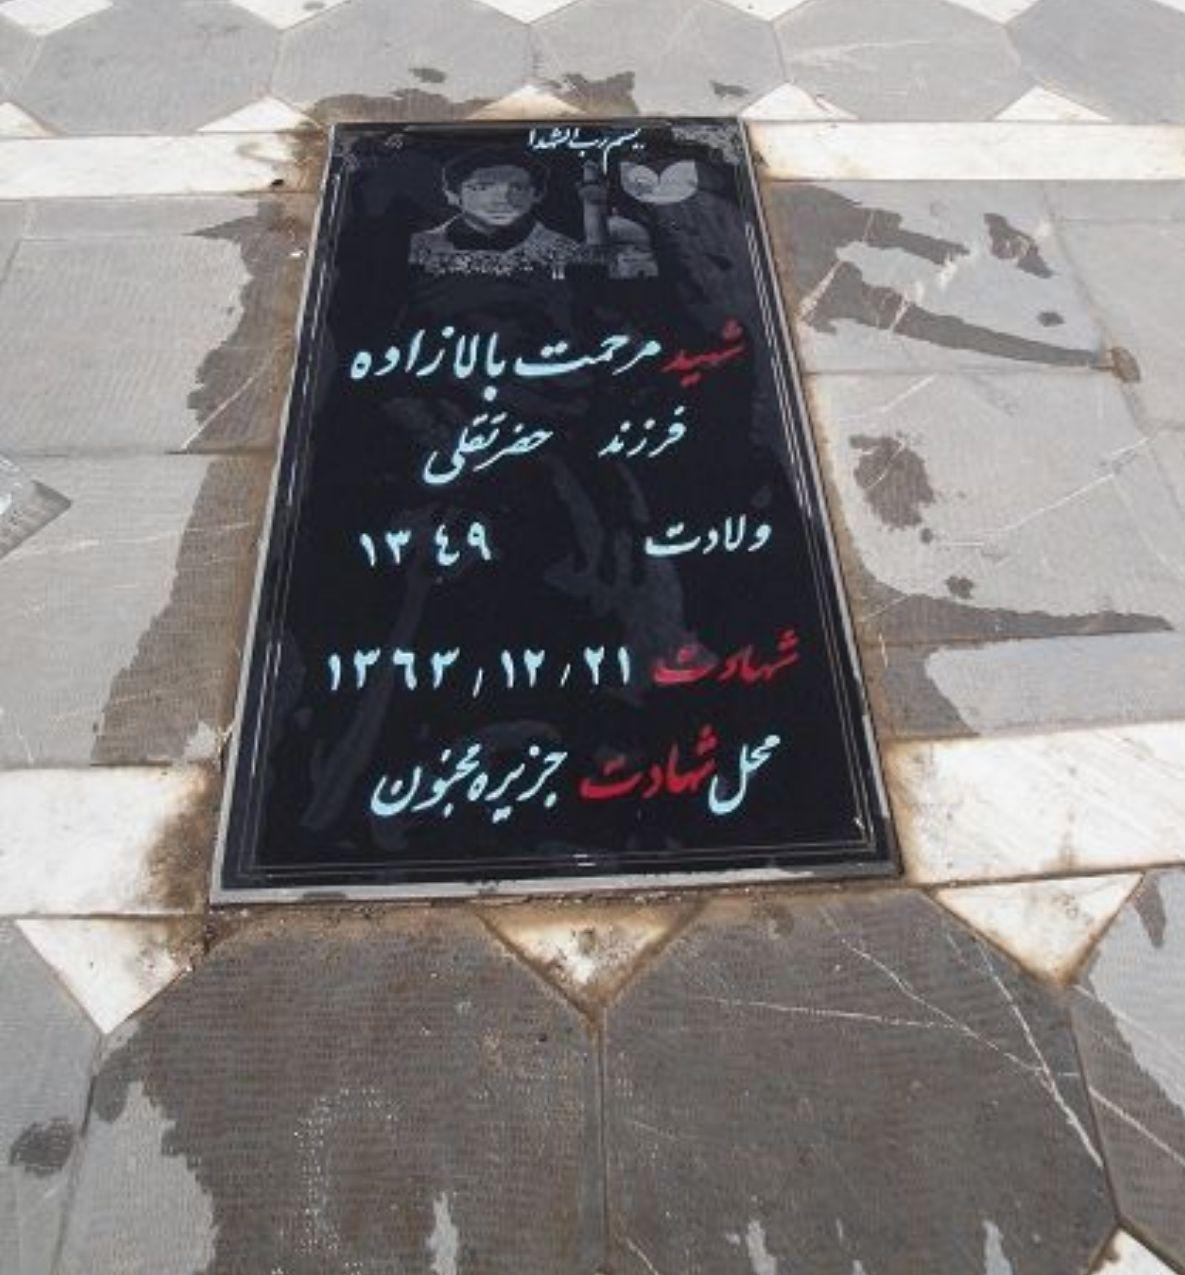 بسم رب الشهدا
شهید مرحمت بالازاده
فرزند حضرتقلی
ولادت ١٣٤٩
شهادت ١٣٦٣/١٢/٢١
محل شهادت جزیره مجنون